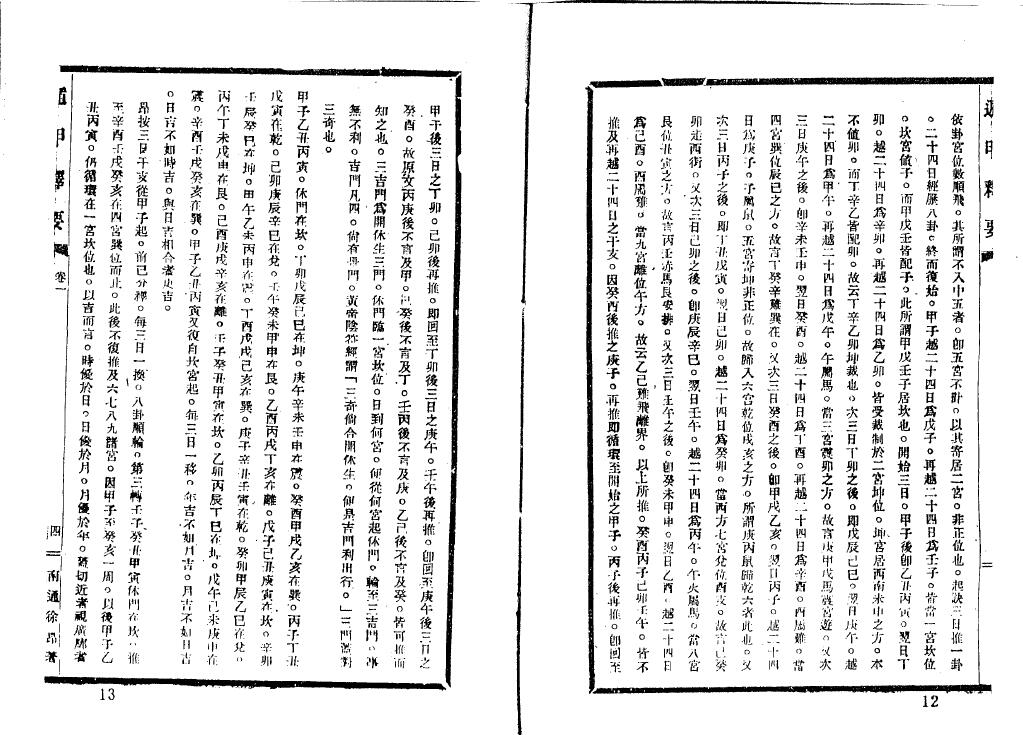 遁甲釋要
依卦宮位數順飛。其所謂不入中五者。卽五宮不計。以其寄居二宮。非正位也。起訣三日推一卦
。二十四日經歷八卦。終而復始。甲子越二十四日爲戊子。再越二十四日爲壬子。皆當一宮坎位
。坎宮値子。而甲戊壬皆配子。此所謂甲戊壬子居坎也。開始三日。甲子後卽乙丑丙寅。翌日丁
卯。越二十四日爲辛卯。再越二十四日爲乙卯。皆受裁制於二宮坤位。坤宮居西南未申之方。本
不値卯。而丁辛乙皆配卯。故云丁辛乙卯坤裁也。次三日丁卯之後。卽戊辰己巳。翌日庚午。越
二十四日爲甲午。再越二十四日爲戊午。午屬馬。當三宮震卯之方。故言庚甲戊馬震宮遊。又次
三日庚午之後。卽辛未壬申。翌日癸酉。越二十四日爲丁酉。再越二十四日爲辛酉。酉屬雞。當
四宮巽位辰巳之方。故言丁癸辛雞巽在。又次三日癸酉之後。卽甲戌乙亥。翌日丙子。越二十四
日爲庚子。子屬鼠。五宮寄坤非正位。故歸入六宮乾位戌亥之方。所謂庚丙鼠歸乾六者此也。又
次三日丙子之後。卽丁丑戊寅。翌日己卯。越二十四日爲癸卯。當西方七宮兌位酉支。故言己癸
卯遊西街。又次三日己卯之後。卽庚辰辛巳。翌日壬午。越二十四日爲丙午。午火屬馬。當八宮
艮位丑寅之方。故言丙壬赤馬艮安排。又次三日壬午之後。卽癸未甲申。翌日乙酉。越二十四日
爲己酉。酉屬雞。當九宮離位午方。故云乙己雞飛離界。以上所推。癸酉丙子己卯壬午。皆不
推及再越二十四日之干支。因癸酉後推之庚子。再推卽循環至開始之甲子。丙子後再推。卽回至
12
甲午後三日之丁卯。己卯後再推。卽回至丁卯後三日之庚午。壬午後再推。卽回至庚午後三日之
癸酉。故原文丙庚後不言及甲。己癸後不言及丁。壬丙後不言及庚。乙己後不言及癸。皆可推而
知之也。三吉門爲開休生三門。休門臨一宮坎位。日到何宮。便從何宮起休門。輪至三吉門。事
無不利。吉門凡四。尙有景門。黃帝陰符經謂「三奇倘合開休生。便是吉門利出行。」三門蓋對
三奇也。
甲子乙丑丙寅。休門在坎。丁卯戊辰己巳在坤。庚午辛未壬申在震。癸酉甲戌乙亥在巽。丙子丁丑
戊寅在乾。己卯庚辰辛巳在兌。壬午癸未甲申在艮。乙酉丙戌丁亥在離。戊子己丑庚寅在坎。辛卯
壬辰癸巳在坤。甲午乙未丙申在震。丁酉戊戌己亥在巽。庚子辛丑壬寅在乾。癸卯甲辰乙巳在兌。
丙午丁未戊申在艮。己酉庚戌辛亥在離。壬子癸丑甲寅在坎。乙卯丙辰丁巳在坤。戊午己未庚申在
震。辛酉壬戌癸亥在巽。甲子乙丑丙寅又復自坎宮起。每三日一移。年吉不如月吉。月吉不如日吉
。日吉不如時吉。與日吉相合者更吉。
昂按三日干支從甲子起。前已分釋。每三日一換。八卦順輪。第三轉壬子癸丑甲寅休門在坎。推
至辛酉壬戌癸亥在四宮巽位而止。此後不復推及六七八九諸宮。因甲子至癸亥一周。以後甲子乙
丑丙寅。仍循環在一宮坎位也。以吉而言。時優於日。日優於月。月優於年。蓋切近者視廣廓者
遁甲釋要 卷一
四 南通徐昂著
13